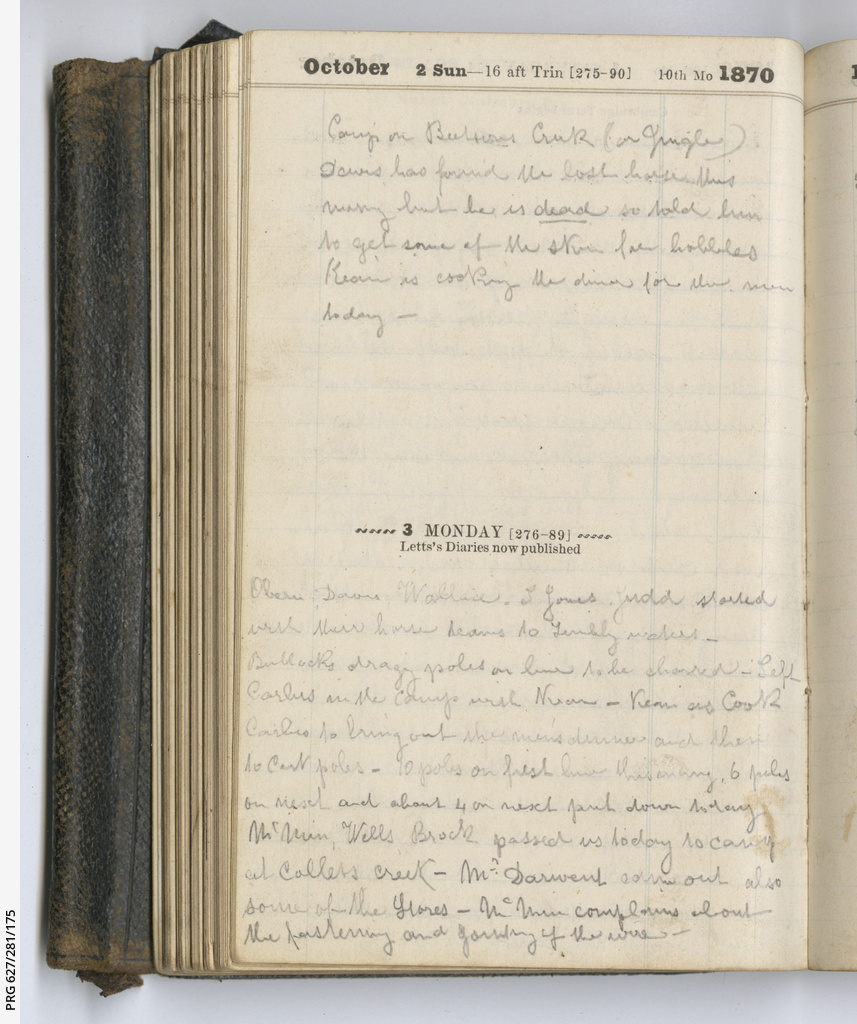 October 2 Sun—16 aft Trin [275-90] 10th Mo 1870
Camp on Creek (or Jungle)
has found the lost horse this
but he is dead so told him
to get some of the skin for hobbles
is cooking the dinner for the men
today —
3 MONDAY [276-89]
Letts's Diaries now published
Wallace. Jones Judd started
with their horse teams to waters —
Bullocks poles on line to be charred — Left
in the Camp with — as Cook
to bring out the mens dinner and then
to Cart poles — poles on first line this, 6 poles
on next and about 4 on next put down today
Mc Minn, Wells Brock passed us today to camp
at Collets creek — Mr Darwent came out also
some of the Stores — Mc Minn complains about
the fastening and joining of the wire —
PRG 627/281/175